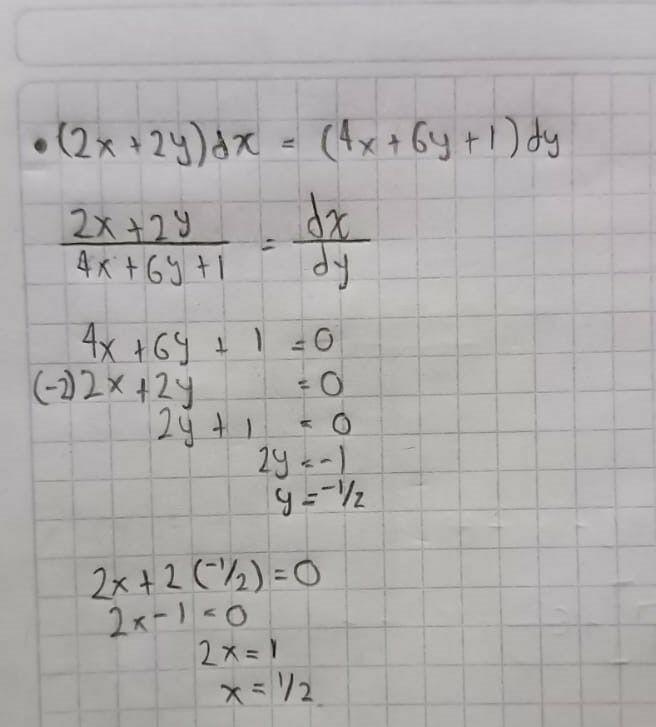 • (2x + 2y)dx = (4x + 6y + 1)dy
2x + 2y / 4x + 6y + 1 = dx / dy
4x + 6y + 1 = 0
(-2) 2x + 2y = 0
2y + 1 = 0
2y = -1
y = -1/2
2x + 2 (-1/2) = 0
2x - 1 = 0
2x = 1
x = 1/2